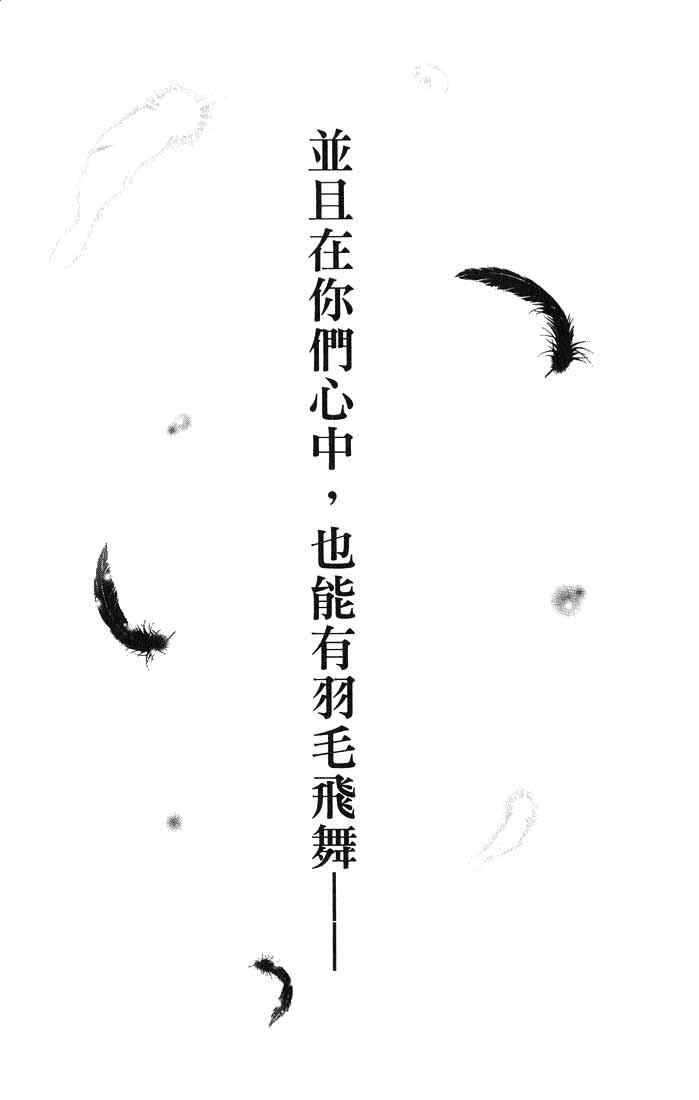 並且在你們心中，也能有羽毛飛舞──